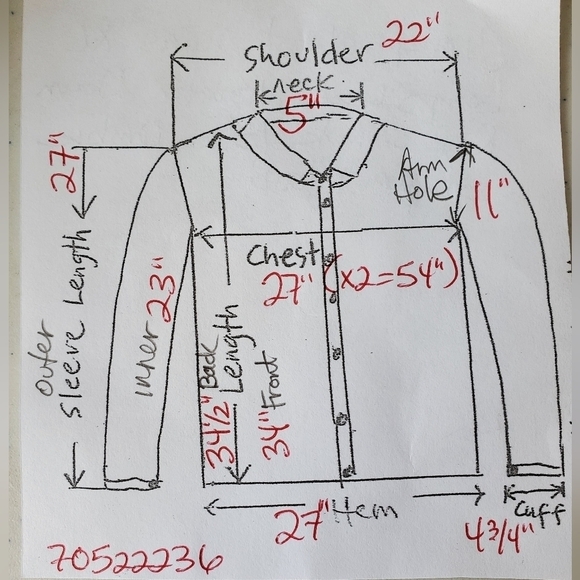 Shoulder 22"
neck
5"
Arm
Hole
11"
27"
Outer
Sleeve Length
inner 23"
Chest
27" (x2=54")
34 1/2" Back
Length
34" Front
27" Hem
Cuff
4 3/4"
70522236